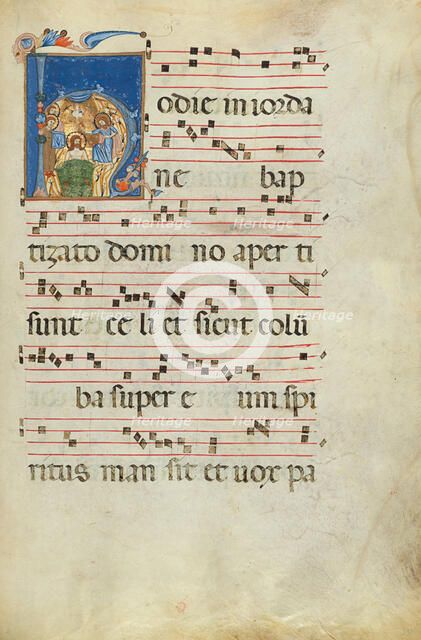 Hodie in iorda
ne bap
tizato domi no aper ti
sunt ce li et sicut colū
ba super e um spi
ritus man sit et uox pa
Heritage
Heritage
Heritage
Heritage
Heritage
Heritage
Heritage
Heritage